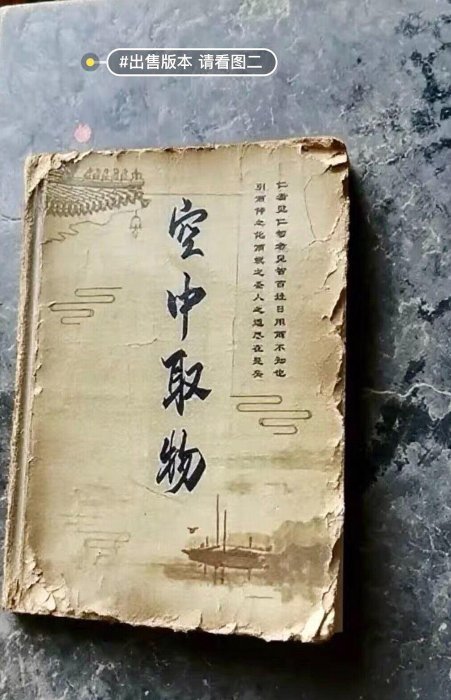 #出售版本 请看图二
仁者见仁智者见智百姓日用而不知也
引而伸之化而裁之圣人之道尽在是矣
空中取物